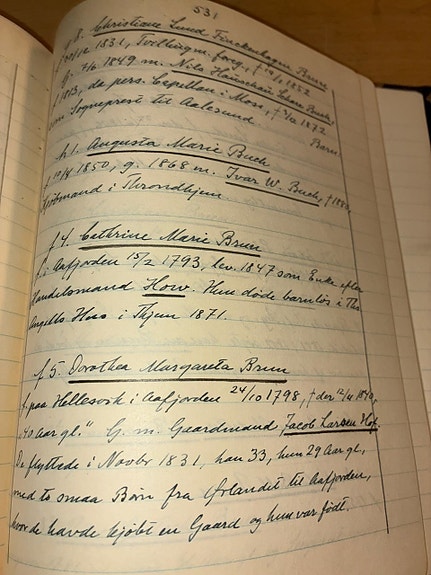 531
g 8. Christiane Lund Finckenhagen Bruun
10/12 1831, Tvilling m. foreg., † 19/2 1852
G. 7/6 1849 m. Nils Schou Buch,
f 1813, da pers. Capellan i Moss, † 1/12 1872
som Sogneprest til Aalesund.
Barn
h1. Augusta Marie Buch
f. 10/8 1850, g. 1868 m. Ivar W. Buch, † 1880,
Kjøbmand i Throndhjem.
f 4. Cathrine Marie Bruun
f. i Aafjorden 15/2 1793, lev. 1847 som Enke efter
Handelsmand How. Hun döde barnlös i Ths
Angells Hus i Thjem 1871.
f 5. Dorothea Margareta Bruun
f. paa Hellesvik i Aafjorden 24/10 1798, † der 12/11 1840,
"40 Aar gl." G. m. Gaardmand Jacob Larsen Hof.
De flyttede i Novbr 1831, han 33, hun 29 Aar gl,
med to smaa Børn fra Ørlandet til Aafjorden,
hvor de havde kjøbt en Gaard og hun var født.